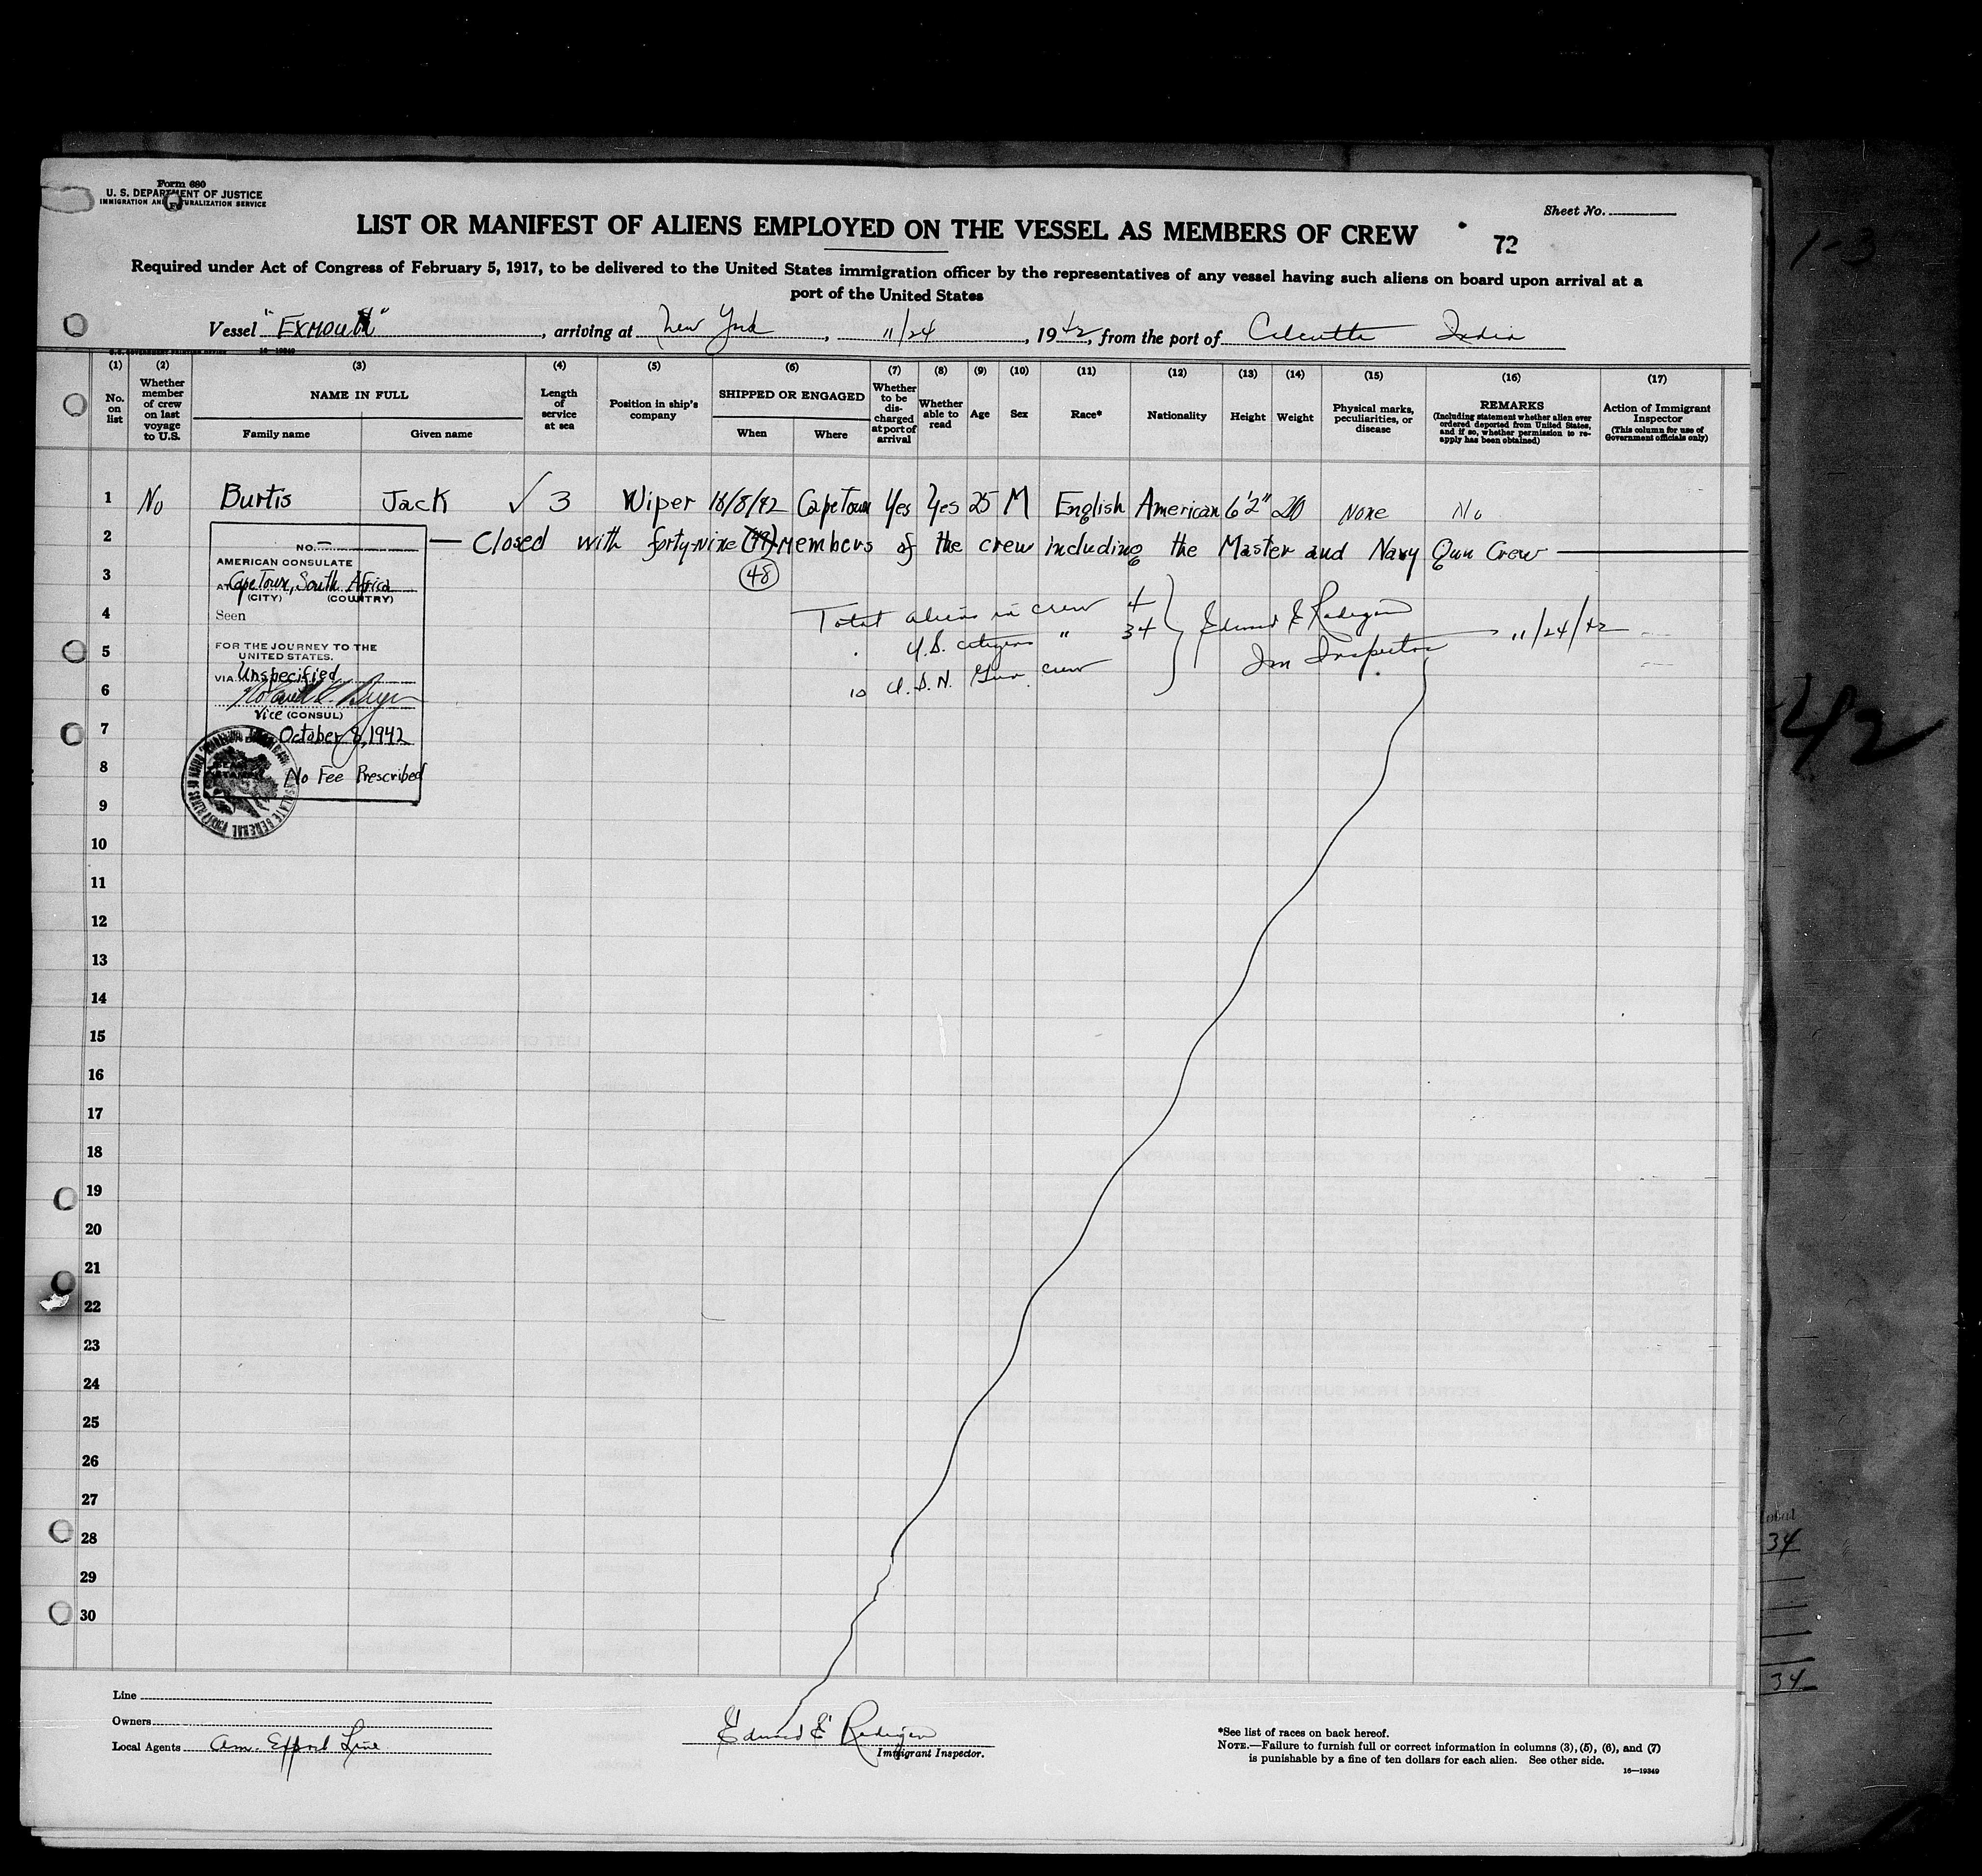 Form 680
U. S. DEPARTMENT OF JUSTICE
IMMIGRATION AND NATURALIZATION SERVICE
Sheet No.
LIST OR MANIFEST OF ALIENS EMPLOYED ON THE VESSEL AS MEMBERS OF CREW
72
1-3
Required under Act of Congress of February 5, 1917, to be delivered to the United States immigration officer by the representatives of any vessel having such aliens on board upon arrival at a
port of the United States
Vessel "EXMOUTH", arriving at New York, 11/24, 1942, from the port of Calcutta India
U.S. GOVERNMENT PRINTING OFFICE 16-19349
(1) No. on list
(2) Whether member of crew on last voyage to U.S.
(3) NAME IN FULL Family name Given name
(4) Length of service at sea
(5) Position in ship's company
(6) SHIPPED OR ENGAGED When Where
(7) Whether to be discharged at port of arrival
(8) Whether able to read
(9) Age
(10) Sex
(11) Race*
(12) Nationality
(13) Height
(14) Weight
(15) Physical marks, peculiarities, or disease
(16) REMARKS (Including statement whether alien ever ordered deported from United States, and if so, whether permission to reapply has been obtained)
(17) Action of Immigrant Inspector (This column for use of Government officials only)
1 No Burtis Jack ✓ 3 Wiper /8/42 CapeTown Yes Yes 25 M English American 6'2" None No
2 — Closed with forty-nine (49) members of the crew including the Master and Navy Gun Crew —
3 (48)
4 Total aliens in crew 4
5 U.S. citizens " 34
6 10 U.S.N. Gun crew
Edward E Radigan
Imm Inspector 11/24/42
NO. —
AMERICAN CONSULATE
AT CapeTown, South Africa
(CITY) (COUNTRY)
Seen
FOR THE JOURNEY TO THE
UNITED STATES.
VIA Unspecified
Vice (CONSUL)
October 8, 1942
No Fee Prescribed
42
7
8
9
10
11
12
13
14
15
16
17
18
19
20
21
22
23
24
25
26
27
28
29
30
34
34
Line
Owners
Local Agents Am. Export Line
Edward E Radigan
Immigrant Inspector.
*See list of races on back hereof.
NOTE.—Failure to furnish full or correct information in columns (3), (5), (6), and (7)
is punishable by a fine of ten dollars for each alien. See other side.
16—19349